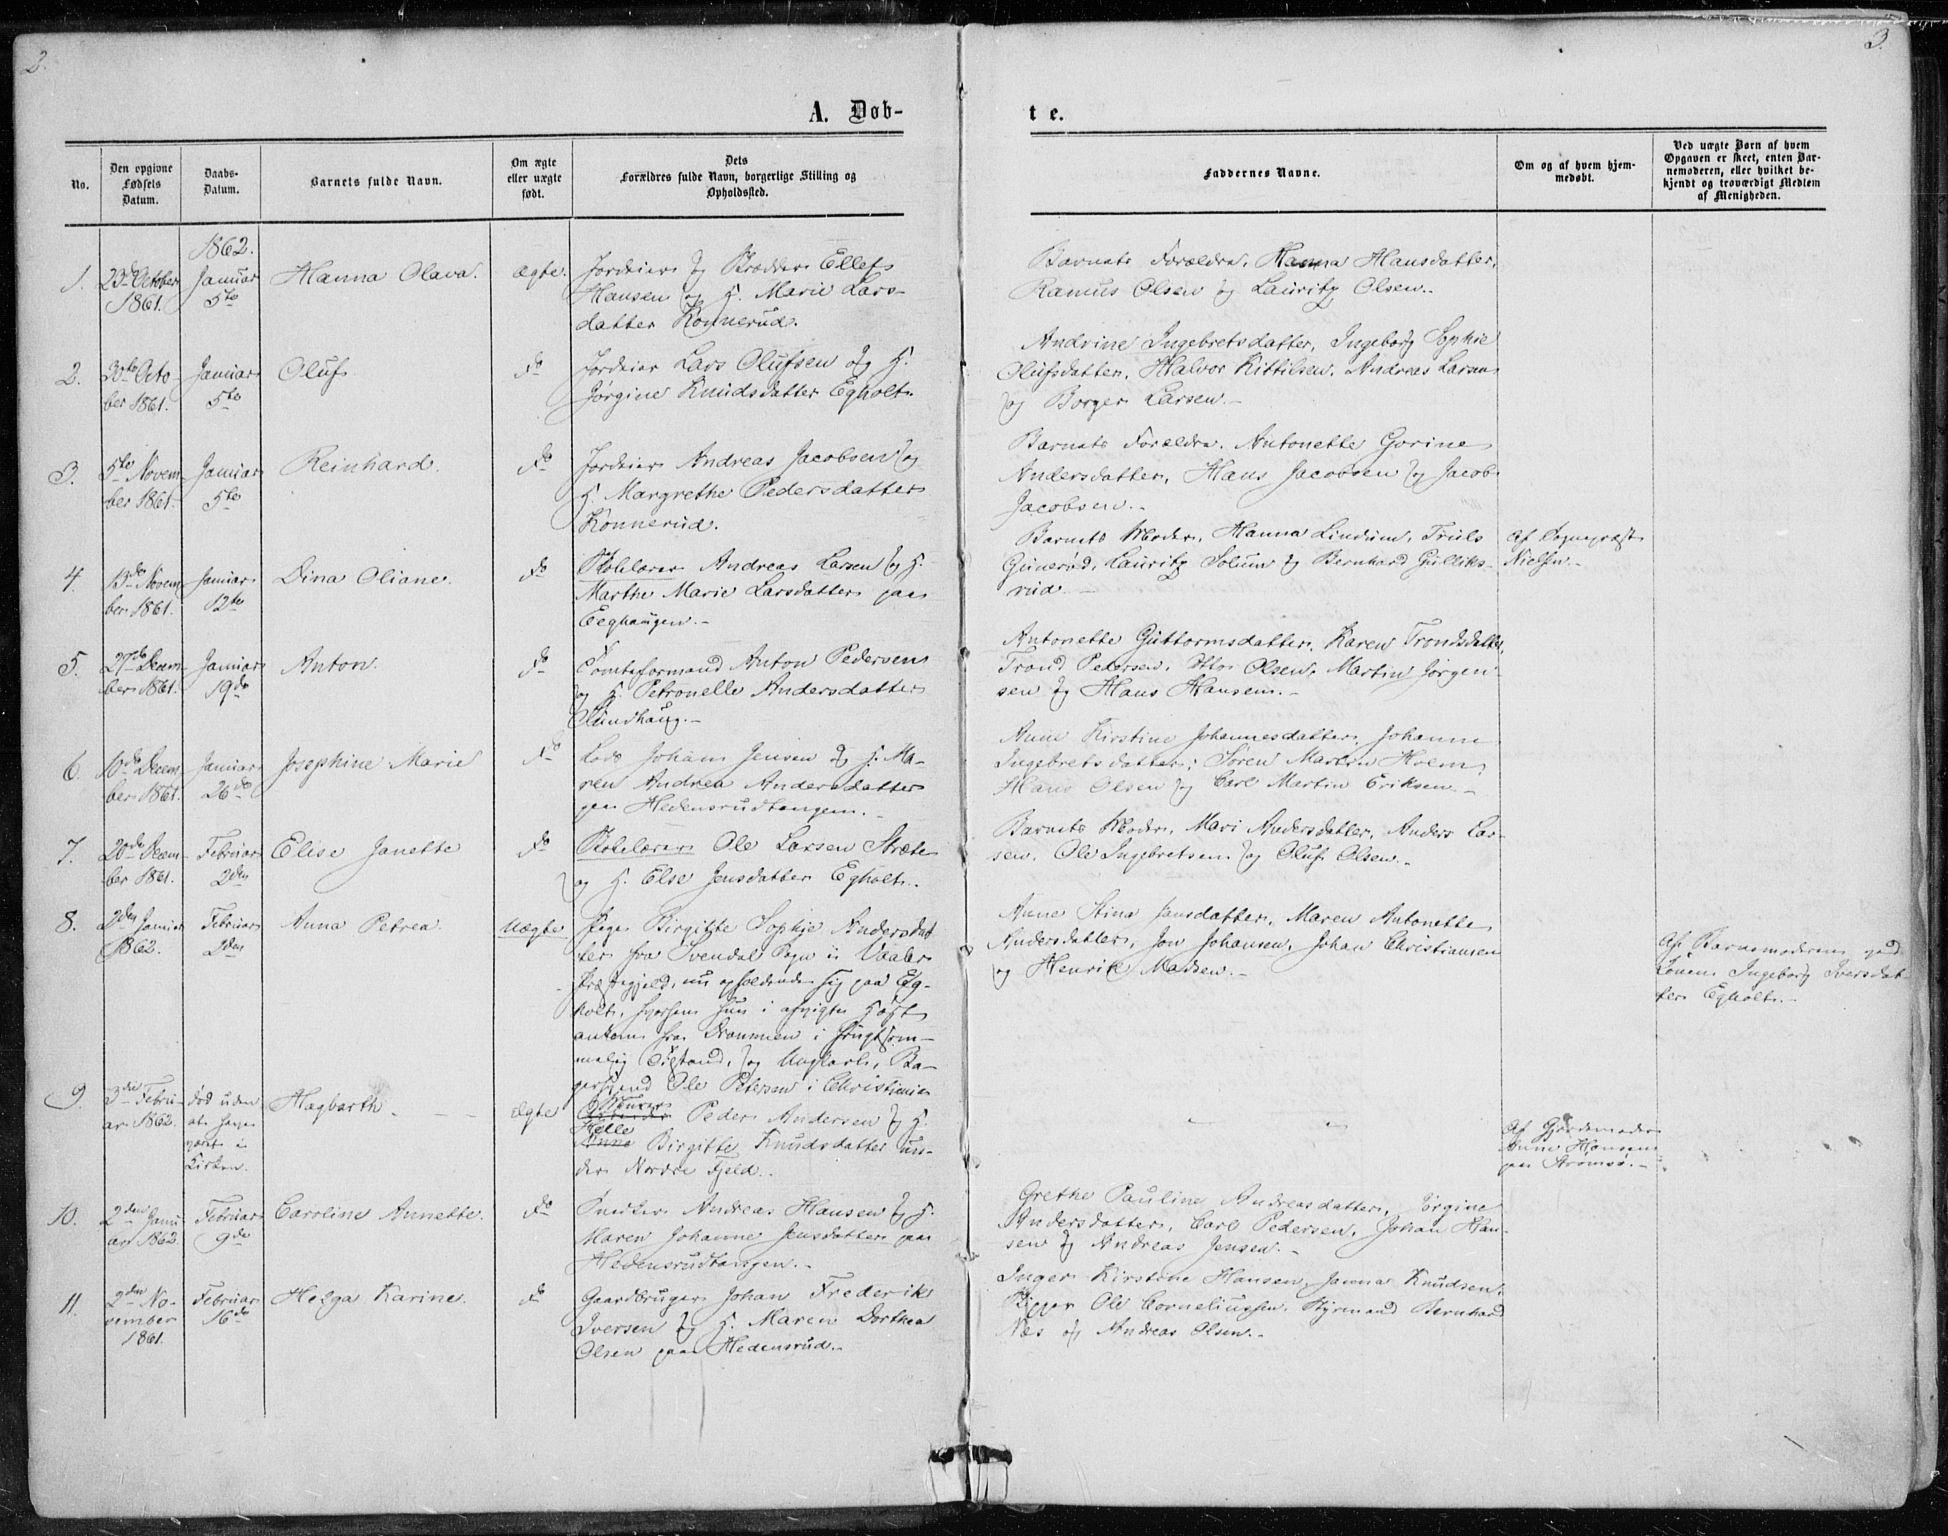 2.
A. Døb-
No.
Den opgivne
Fødsels
Datum.
Daabs-
Datum.
Barnets fulde Navn.
Om ægte
eller uægte
født.
Dets
Forældres fulde Navn, borgerlige Stilling og
Opholdssted.
1862.
1.
23de October
1861.
Januar
5te
Hanna Olava.
ægte.
Jordeier og Bødker Ellef
Hansen og H. Marie Lars-
datter Konnerud.
2.
30te Octo-
ber 1861.
Januar
5te
Oluf
do
Jordeier Lars Olufsen og H.
Jørgine Knudsdatter Egholt.
3.
5te Novem-
ber 1861.
Januar
5te
Reinhard.
do
Jordeier Andreas Jacobsen og
H. Margrethe Pedersdatter
Konnerud.
4.
13de Novem-
ber 1861.
Januar
12te
Dina Oliane.
do
Skolelærer Andreas Larsen og H.
Marthe Marie Larsdatter paa
Eeghaugen.
5.
27de Decem-
ber 1861.
Januar
19de
Anton.
do
Tomteformand Anton Pedersen
og H. Petronelle Andersdatter
6.
10de Decem-
ber 1861.
Januar
26de
Josephine Marie
do
Lods Johan Jensen og H. Ma-
ren Andrea Andersdatter
paa Hedensrudtangen.
7.
20de Decem-
ber 1861.
Februar
2den
Elise Janette
do
Skolelærer Ole Larsen Stræte
og H. Else Jensdatter Egholt.
8.
2den Januar
1862.
Februar
2den
Anna Petrea.
Uægte
Pige Birgitte Sophie Andersdat
ter fra Svendal Sogn i Vaaler
Præstegjeld, nu opholdende sig paa Eg-
holt, hvorhen hun i afvigte Høst
ankom fra Drammen i frugtsom-
melig Tilstand, og Ungkarl, Ba-
gersvend Ole Petersen i Christiania
9.
3die Febru-
ar 1862.
død uden
at have
været i
Kirken.
Hagbarth.
ægte
Murer
Peder Andersen og H.
Helle
Anne Birgitte Knudsdatter un-
der Nordre Fjeld.
10.
2den Janu-
ar 1862.
Februar
9de
Caroline Annette.
do
Snedker Andreas Hansen og H.
Maren Johanne Jensdatter paa
Hedensrudtangen.
11.
2den No-
vember
1861.
Februar
16de
Helga Karine.
do
Gaardbruger Johan Frederik
Iversen og H. Maren Dorthea
Olsen paa Hedensrud.
3.
te.
Faddernes Navne.
Om og af hvem hjem-
medøbt.
Ved uægte Børn af hvem
Opgaven er skeet, enten Bar-
nemoderen, eller hvilket be-
kjendt og troværdigt Medlem
af Menigheden.
Barnets Forældre, Hanna Hansdatter,
Ramus Olsen og Lauritz Olsen.
Andrine Ingebretsdatter, Ingeborg Sophie
Olufsdatter, Halvor Kittilsen, Andreas Larsen
og Borger Larsen.
Barnets Forældre, Antonette Gorine
Andersdatter, Hans Jacobsen og Jacob
Jacobsen.
Barnets Moder, Hanna Lindum, Truls
Gunerød, Lauritz Solum og Bernhard Gulliks-
rud.
Af Sognepræst
Nielsen.
Antonette Guttormsdatter, Karen Trondsdatter,
Trond Pedersen, Otto Olsen, Martin Jørgen-
sen og Hans Hansen.
Anne Kirstine Johannesdatter, Johanne
Ingebretsdatter, Søren Martin Hoem,
Hans Olsen og Carl Martin Eriksen.
Barnets Moder, Mari Andersdatter, Anders Lar-
sen, Ole Ingebretsen og Oluf Olsen.
Anne Stina Jansdatter, Maren Antonette
Andersdatter, Jon Johansen, Johan Christiansen
og Henrik Madsen.
Af Barnemoderen og
Konen Ingeborg Iversdat
ter Egholt.
Af Gjordemoder
Anne Hansen
paa Strømsø.
Grethe Pauline Andreasdatter, Jørgine
Andersdatter, Carl Pedersen, Johan Han-
sen og Andreas Jensen.
Inger Kirstine Hansen, Janna Knudsen,
Skipper Ole Corneliussen, Styrmand Bernhard
Næs og Andreas Olsen.